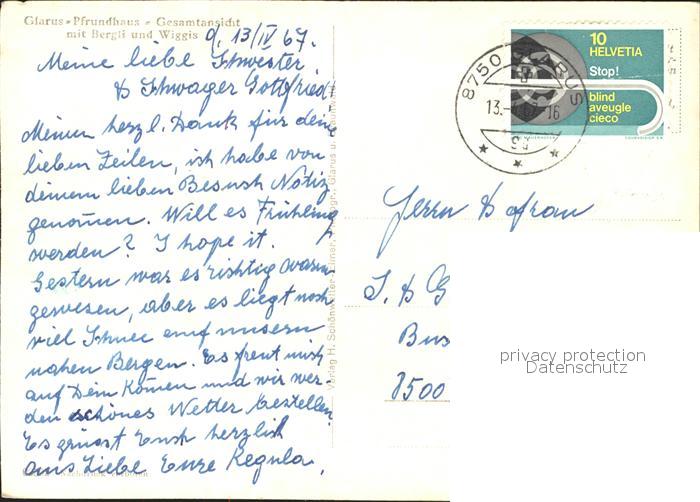 Glarus - Pfrundhaus - Gesamtansicht
mit Bergli und Wiggis
d. 13/IV 67.
Meine liebe Schwester
& Schwager Gottfried!
Meinen herzl. Dank für deine
lieben Zeilen, ich habe von
deinem lieben Besuch Notiz
genommen. Will es Frühling
werden? I hope it.
Gestern war es richtig warm
gewesen, aber es liegt noch
viel Schnee auf unsern
nahen Bergen. Es freut mich
auf Dein Kommen und wir wer-
den schönes Wetter bestellen.
Es grüsst Euch herzlich
aus Liebe Eure Regula.
Verlag H. Schönwetter-Elmer, Glarus u.
10
HELVETIA
Stop!
blind
aveugle
cieco
COURVOISIER S.A.
8750 GLARUS
13.
16
Herrn & Frau
J. & G
Bus
8500
privacy protection
Datenschutz